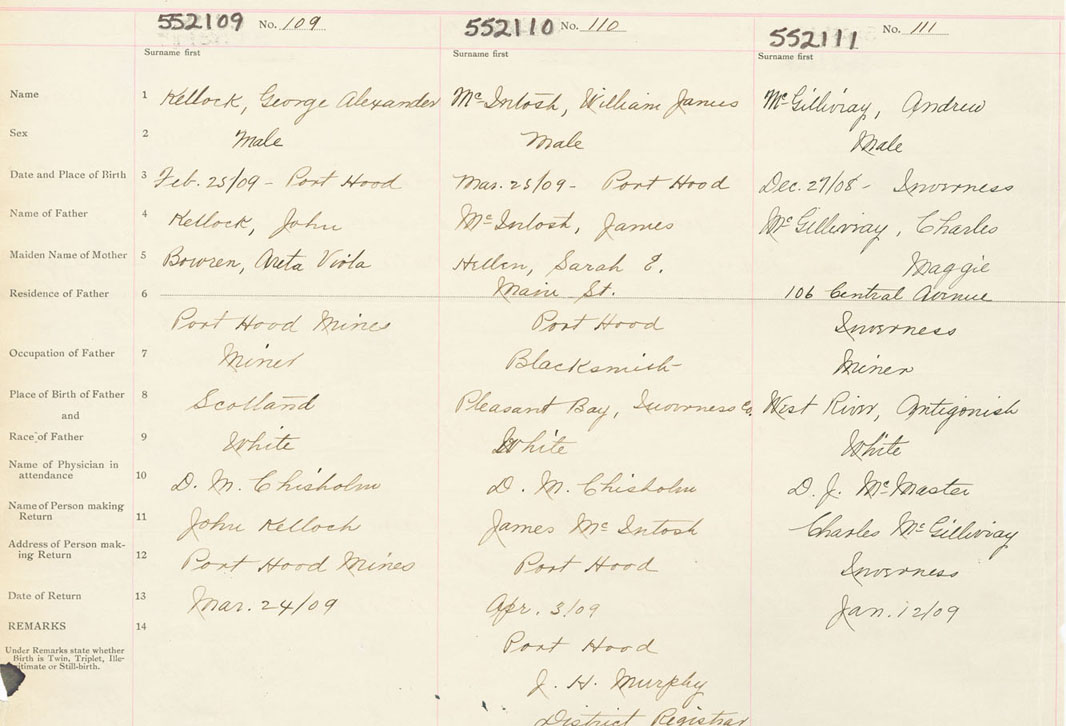 552109 No. 109 552110 No. 110 552111 No. 111
Surname first Surname first Surname first
Name 1 Kellock, George Alexander McIntosh, William James McGillivray, Andrew
Sex 2 Male Male Male
Date and Place of Birth 3 Feb. 25/09 - Port Hood Mar. 25/09 - Port Hood Dec. 27/08 - Inverness
Name of Father 4 Kellock, John McIntosh, James McGillivray, Charles
Maiden Name of Mother 5 Bowren, Areta Viola Hellen, Sarah E. Maggie
Residence of Father 6 Main St. 106 Central Avenue
Port Hood Mines Port Hood Inverness
Occupation of Father 7 Miner Blacksmith Miner
Place of Birth of Father 8 Scotland Pleasant Bay, Inverness Co. West River, Antigonish
and
Race of Father 9 White White White
Name of Physician in
attendance 10 D. M. Chisholm D. M. Chisholm D. J. McMaster
Name of Person making
Return 11 John Kelloch James McIntosh Charles McGillivray
Address of Person mak-
ing Return 12 Port Hood Mines Port Hood Inverness
Date of Return 13 Mar. 24/09 Apr. 3/09 Jan. 12/09
REMARKS 14
Port Hood
Under Remarks state whether
Birth is Twin, Triplet, Ille-
gitimate or Still-birth.
J. H. Murphy
District Registrar